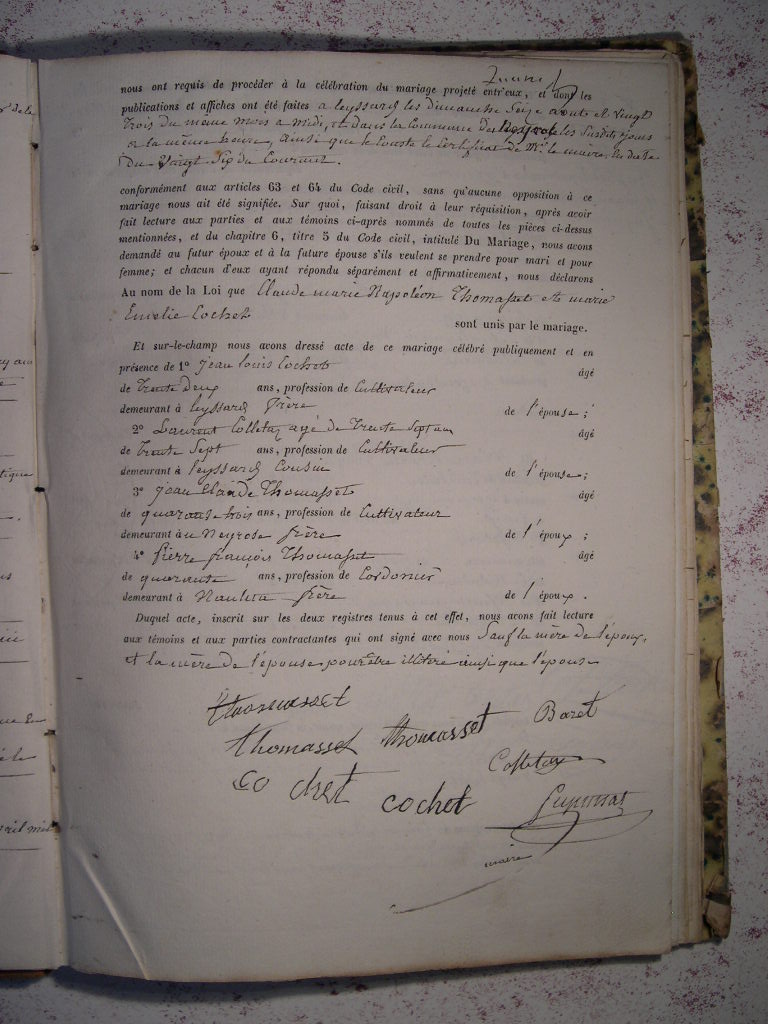 nous ont requis de procéder à la célébration du mariage projeté entr'eux, et dont les
publications et affiches ont été faites a leyssard les dimanche Seize aoute et vingt
trois du même mois a midi, et dans la Commune de les Susdits jours
a la même heure, ainsi que le Conste le Certificat de Mr. le maire, en date
du Vingt Six du Courant.
conformément aux articles 63 et 64 du Code civil, sans qu'aucune opposition à ce
mariage nous ait été signifiée. Sur quoi, faisant droit à leur réquisition, après avoir
fait lecture aux parties et aux témoins ci-après nommés de toutes les pièces ci-dessus
mentionnées, et du chapitre 6, titre 5 du Code civil, intitulé Du Mariage, nous avons
demandé au futur époux et à la future épouse s'ils veulent se prendre pour mari et pour
femme; et chacun d'eux ayant répondu séparément et affirmativement, nous déclarons
Au nom de la Loi que Claude marie Napoléon Thomasset et marie
Emelie Cochet sont unis par le mariage.
Et sur-le-champ nous avons dressé acte de ce mariage célébré publiquement et en
présence de 1° Jean Louis Cochet âgé
de trente deux ans, profession de Cultivateur
demeurant à leyssard frère de l'épouse;
2° Laurent Colletaz agé de Trente Sept ans âgé
de Trente Sept ans, profession de Cultivateur
demeurant à leyssard Cousin de l'épouse;
3° Jean Claude Thomasset âgé
de quarante trois ans, profession de Cultivateur
demeurant à u Neyrole frère de l'époux;
4° Pierre françois Thomasset âgé
de quarante ans, profession de Cordonier
demeurant à Nantua frère de l'époux.
Duquel acte, inscrit sur les deux registres tenus à cet effet, nous avons fait lecture
aux témoins et aux parties contractantes qui ont signé avec nous Sauf la mère de l'époux,
et la mère de l'épouse pour être illitéré ainsi que l'épouse
thomasset
thomasset thomasset Baret
Colletaz
Cochet cochet
maire